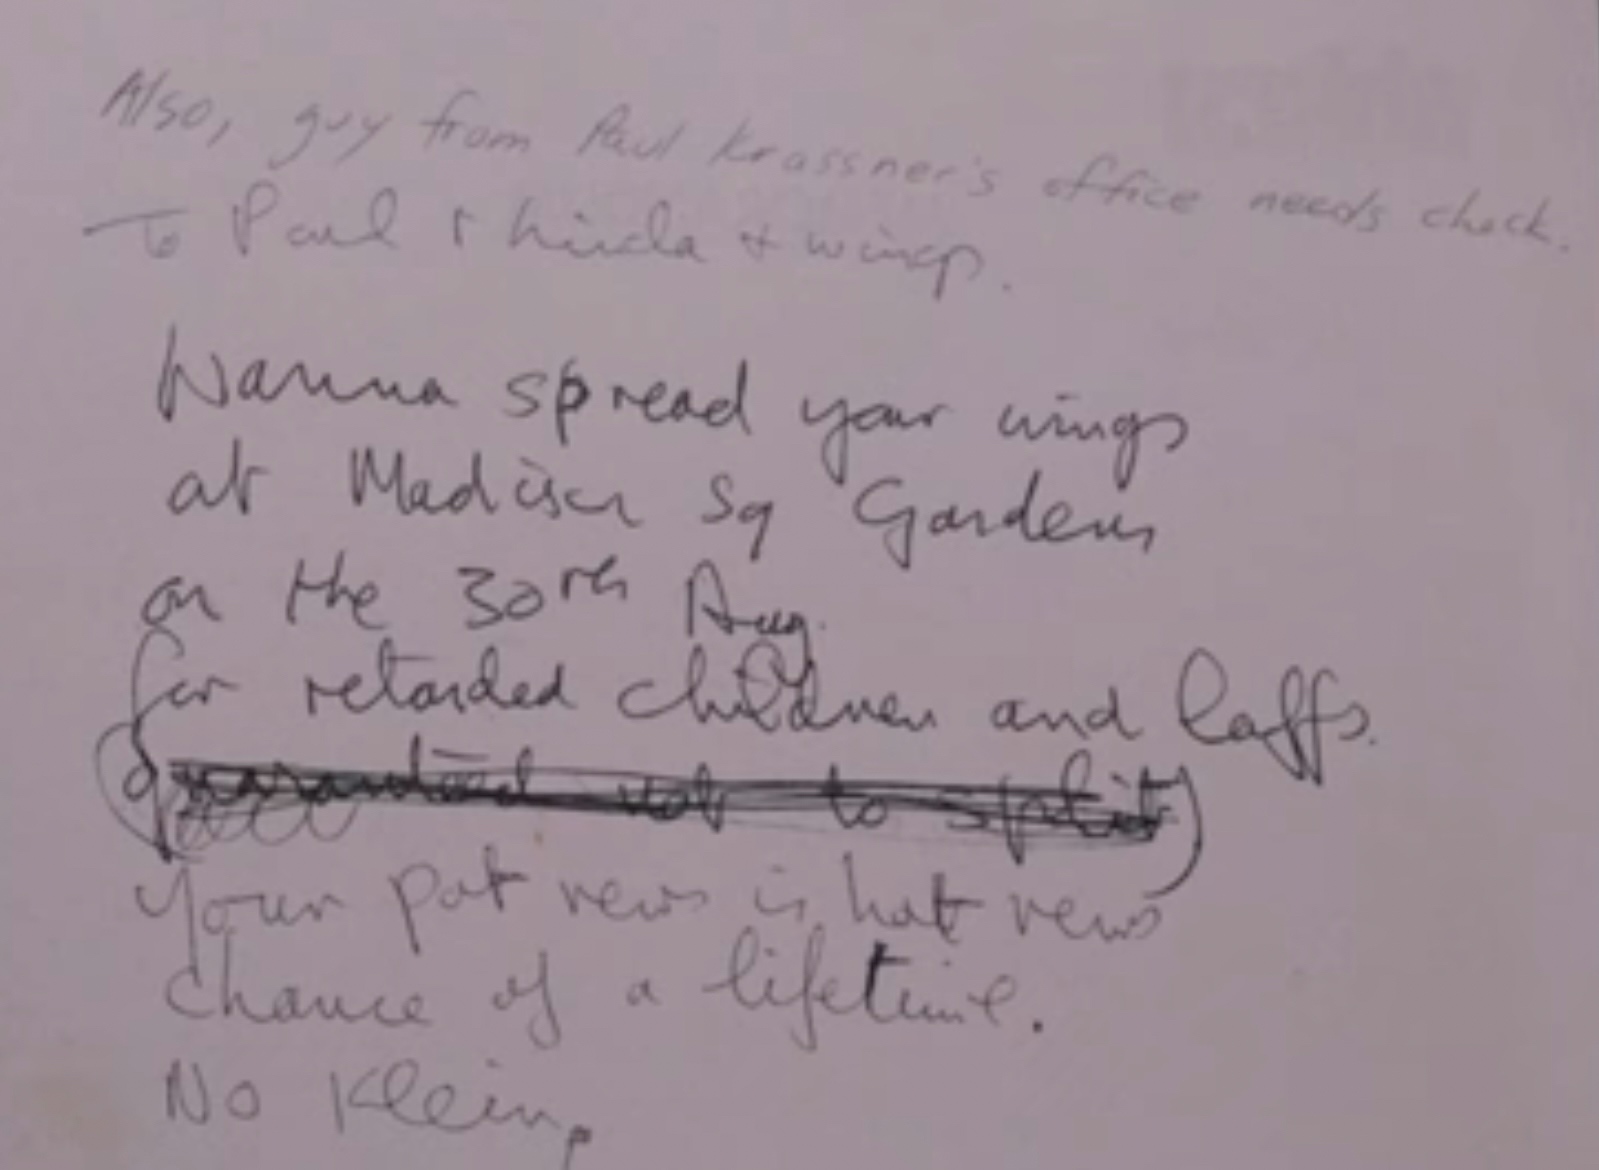 Also, guy from Paul Krassner's office needs check.
To Paul + Linda + wings.
Wanna spread your wings
at Madison Sq Gardens
on the 30th Aug.
for retarded children and laffs.
guaranteed not to split)
Your pot news is hot news
chance of a lifetime.
No Klein,